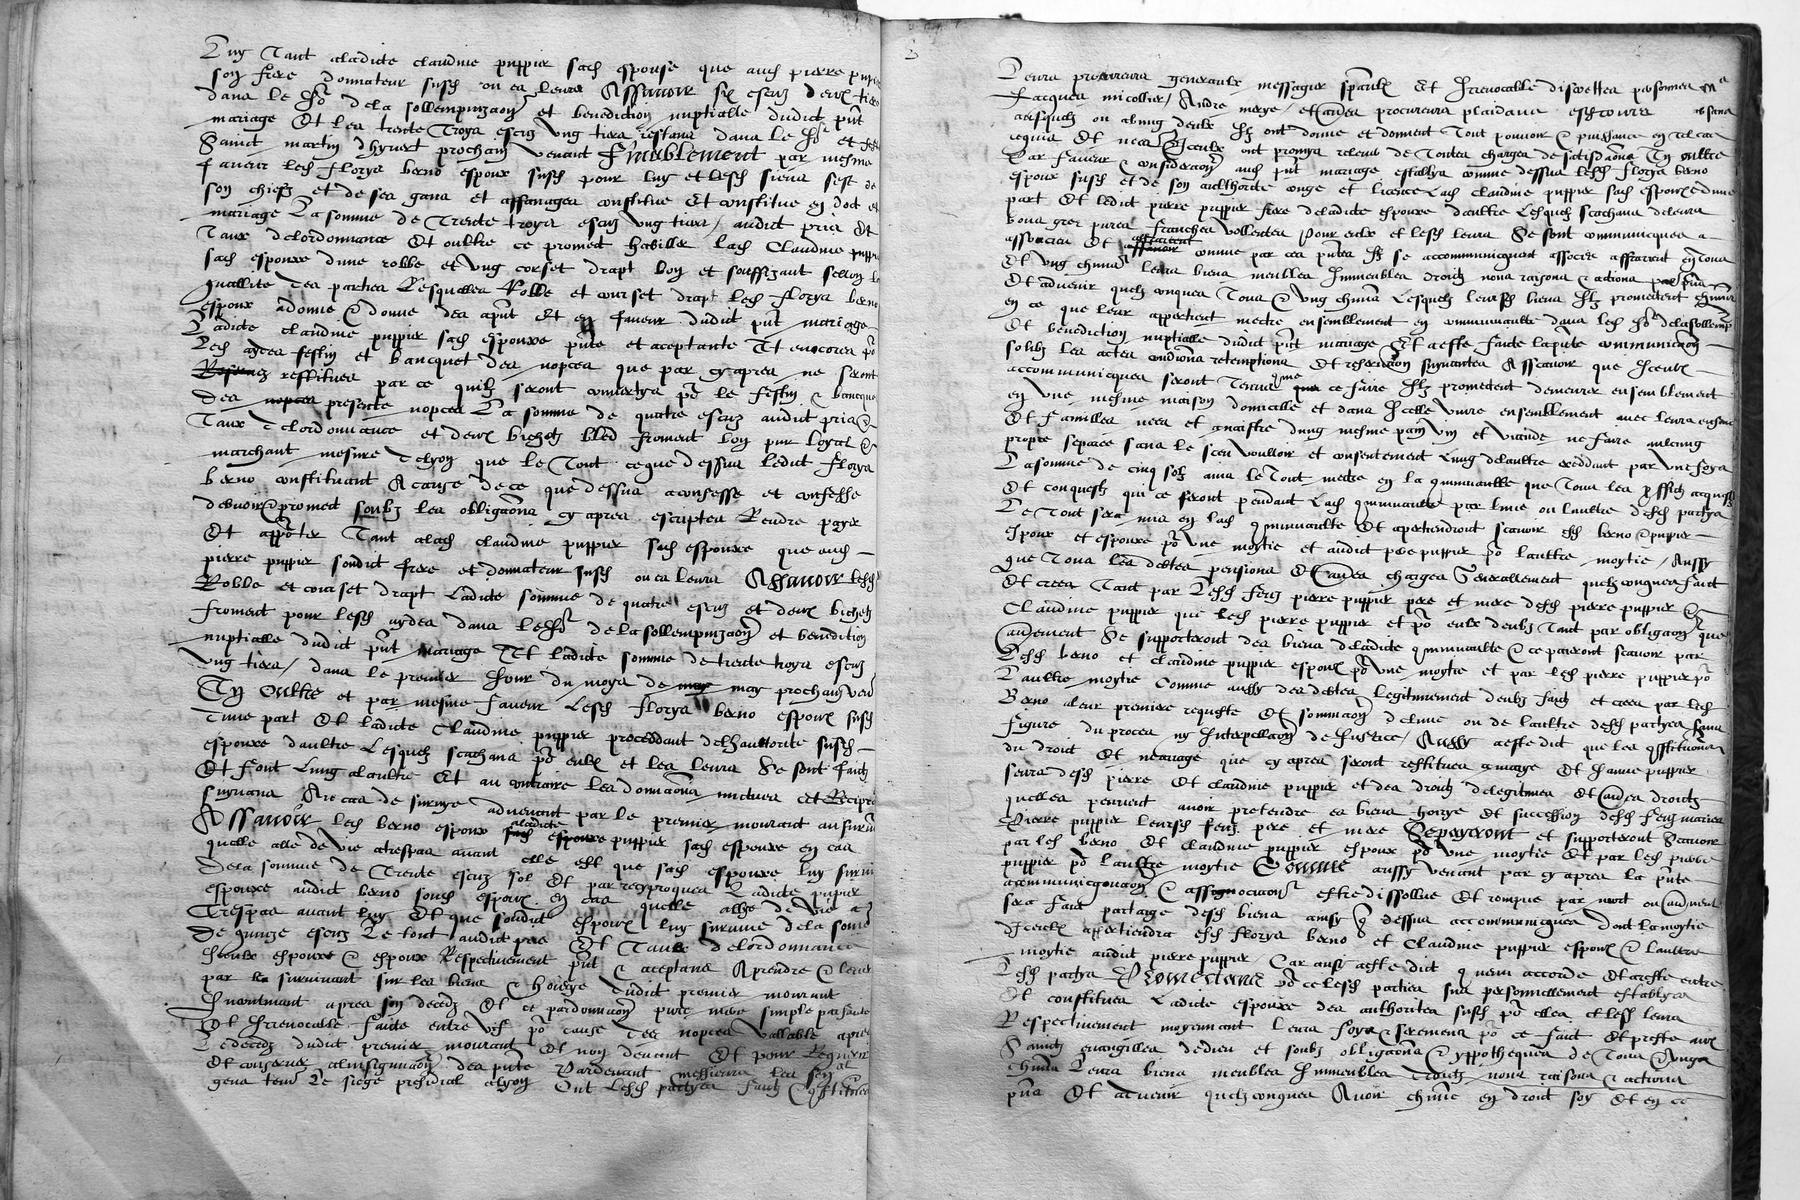 Luy tant a ladicte claudine puppier sad espouse que aud pierre pup
son frere donnateur susd ou es leurs Assavoir six escuz deux tiers
dans le Jor de la sollempnizaon et benediction nuptialle dudict pnt
mariage Et les trente troys escuz ung tiers restans dans le Jor et feste
Sainct martin dhyvert prochain venant Finablement par mesme
faveur led florys berno espoux susd pour luy et lesd siens sest de
son chiefz et de ses gans et constitue Et constitue en dot et
mariage La somme de trente troys escuz ung tiers audict pris Et
taux delordonnance Et oultre ce promect habiller lad Claudine puppier
sad espouse dune robbe et ung corset drapt bon et souffizant sellon la
quallite des parties Lesquelles Robbe et courset drapt led florys berno
espoux a donne & donne des apnt Et en faveur dudict pnt mariage
Ladicte claudine puppier sad espouse pnte et aceptante Et encores po
Les aydes festin et bancquet des nopces que par cy apres ne seront
reffitues par ce quilz seront convertys po le festin & bancque
des presente nopces La somme de quatre escuz audict pris &
taux delordonnance et deux bichetz bled froment bon pur loyal &
marchant mesure de lyon que le tout ce que dessus ledict florys
berno constituant A cause de ce que dessus a confesse et confesse
debvoir & promect soubz les obligaons cy apres escriptes Rendre payer
Et apporter tant a lad claudine puppier sad espouse que aud
pierre puppier sondict frere et donnateur susd ou es leurs Assavoir lesd
Robbe et courset drapt Ladicte somme de quatre escuz et deux bichetz
froment pour lesd aydes dans led Jor de la sollempnizaon et benediction
nuptialle dudict pnt mariage Et ladicte somme de trente troys escuz
ung tiers dans le premier Jour du moys de may prochain ven
En Oultre et par mesme faveur lesd florys berno espoux susd
dune part Et ladicte Claudine puppier proceddant delhauttorite susd
espouse daultre Lesquelz scachans po eulx et les leurs Se sont faict
Et font lung alaultre Et au contraire les donnaons mutues et Recipro
suyvans Au cas de survye advenant par le premier mourant au surviv
Assavoir led berno espoux a ladicte puppier sad espouse en cas
quelle alle de vie a trespas avant elle est que sad espouse luy survive
de la somme de trente escuz sol Et par reciproques Ladicte puppier
espouse audict berno sond espoux en cas quelle allye de vie a
trespas avant luy Et que sondict espoux luy survive de la somme
de quinze escuz Le tout audict pris Et taux de lordonnance
Iceulx espouse & espoux Respectivement pnt & aceptans A prendre & lever
par le survivant sur les biens & hoirye dudict premier mourant
Incontinant apres son decedz Et ce par donnaon pure mere simple parfaicte
Et Irrevocable faicte entre vifz po cause des nopces vallable apres
Le decedz dudict premier mourant Et non devant Et pour Requerir
et consentir alinsignuaon des pntes Pardevant messieurs les sen al
gens tenant Le siege presidial a lyon Ont lesd partyes faictz & constitue
Leurs procureurs generaulx messagers speaulx Et Irrevocable discrettes personnes
Jacques micollier Andre merye et aultres procureurs plaidans esd cours
ausquelz ou al ung deulx Ilz ont donne et donnent tout pouvoir & puissance en tel cas
requis Et neces Iceulx ont promys relever de toutes charges de satisdaons En oultre
Par faveur & consideraon aud pnt mariage establys comme dessus lesd florys berno
espoux susd et de son aucthorite conge et licence Lad claudine puppier sad espouse dune
part Et ledict pierre puppier frere de ladicte espouse daultre Lesquelz scachans de leurs
bons grez pures franches vollontes Pour eulx et lesd leurs Se sont communicques
associes Et comme par ces pntes Ilz se accommunicquent associe affrairent en tous
Et ung chuns leurs biens meubles Immeubles droictz noms raisons & actions
Et advenir quelzconques tous & ung chuns Lesquelz leursd biens Ilz promectent
en ce que leur appertient mectre ensemblement en communaulte dans led Jor de la sollempn
Et benediction nuptialle dudict pnt mariage Et a este faicte la pnte communicaon
soubz les actes condions retemptions et reservaon suyvantes Assavoir que Iceulx
accommunicques seront tenus comme ce faire Ilz promectent demeurer ensemblement
en une mesme maison domicille et dans Icelle vivre ensemblement avec leurs enfans
Et familles nees et a naistre dung mesme pain vin et viande ne faire aulcung
propre separee sans le sceu voulloir et consentement lung delaultre exceddant par une foys
La somme de cinq solz ains le tout mectre en la communaulte que tous les proffictz acquis
Et conquestz qui ce feront pendant lad communaulte par lune ou laultre desd partyes
Le tout sera mis en lad communaulte Et apertiendront scavoir esd berno & puppier
Espoux et espouse po une moytie et audict pierre puppier po laultre moytie Aussy
que tous les debtes pensions Et aultres charges Generallement quelzconques faict
Et crees tant par lesd feuz pierre puppier pere et mere desd pierre puppier &
Claudine puppier que led pierre puppier et po eulx deubz tant par obligaon que
aultrement Se supporteront des biens de ladicte communaulte & ce payeront scavoir par
lesd berno et claudine puppier espoux po une moytie et par led pierre puppier po
Laultre moytie Comme aussy des debtes legitimement deubz faictz et crees par led
Berno a leur premiere requeste Et sommaon de lune ou de laultre desd partyes sans
figure du proces ny Interpellaon de Justice Aussy a este dict que les constitutions
du droict Et mariage que cy apres seront restitues a marye Et Janne puppier
seurs desd pierre Et claudine puppier et des droictz de legitimes Et aultres droictz
quelles peuvent avoir pretendre es biens hoirye et succession desd feuz maries
Pierre puppier leursd feuz pere et mere Se payeront et supporteront Scavoir
par led berno Et claudine puppier espoux po une moytie Et par led pierre
puppier po laultre moytie Comme aussy venant par cy apres la pnte
acommunicquaon & associaon estre dissollue Et rompue par mort ou aultrement
sera faict partaige desd biens ainsy que dessus accommunicques Dont la moytie
Diceulx appertiendra esd florys berno et Claudine puppier espoux & laultre
moytie audict pierre puppier Car ainsy a este dict convenu accorde Et areste entre
lesd partyes Promectans po ce lesd parties sur personnellement establyes
Et constitues Ladicte espouse des authorites susd po elles et lesd leurs
Respectivement moyennant leurs foys & serement po ce faict Et preste aux
Sainctz evangilles de dieu et soubz obligaons & yppotheques de tous & ungs
chuns leurs biens meubles Immeubles droictz noms raisons & actions
pns Et advenir quelzconques Avoir chune en droict soy Et en ce